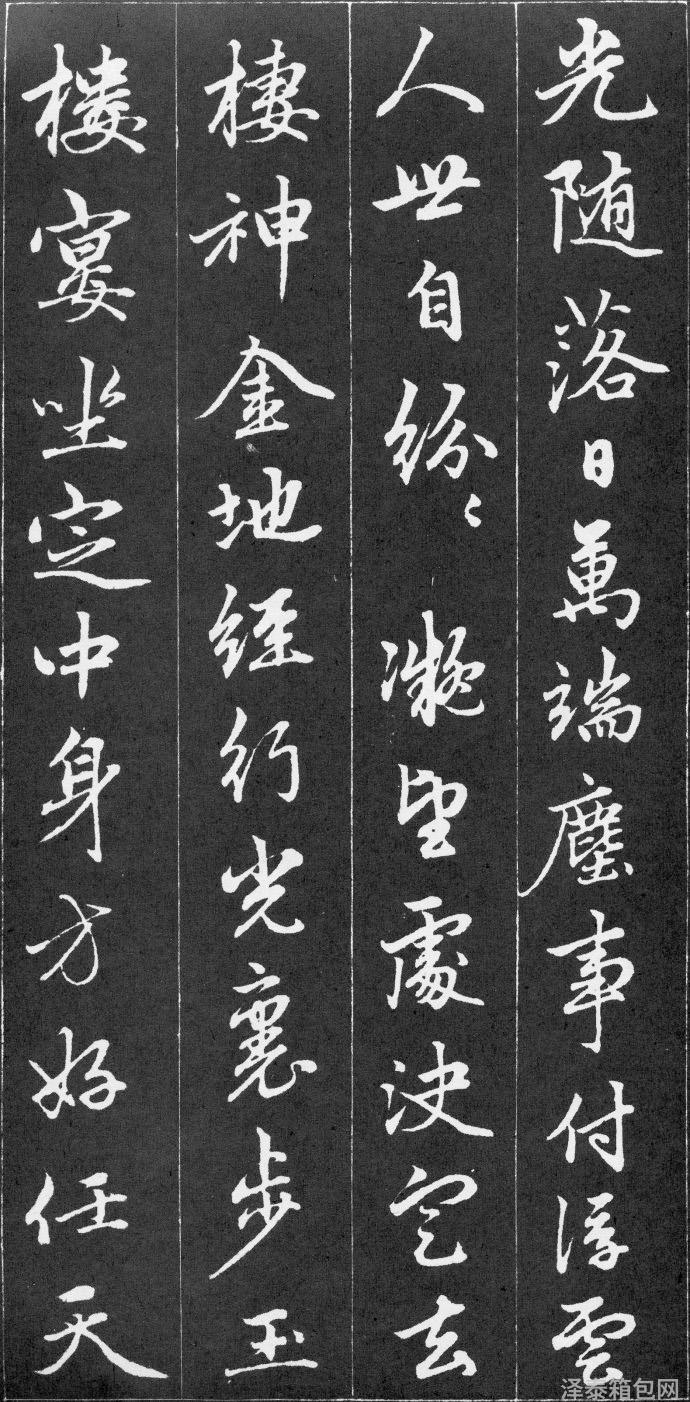 光随落日萬端塵事付浮雲
人世自紛〻 凝望處决定去
棲神金地經行光裏步玉
楼宴坐定中身方好任天
泽泰箱包网